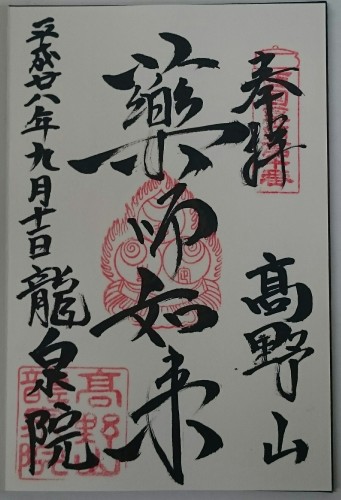 奉拝
高野山
薬師如来
平成廿八年九月十二日
龍泉院
高野山
龍泉院